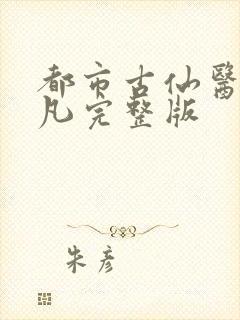 都市古仙醫
凡完整版
朱彥